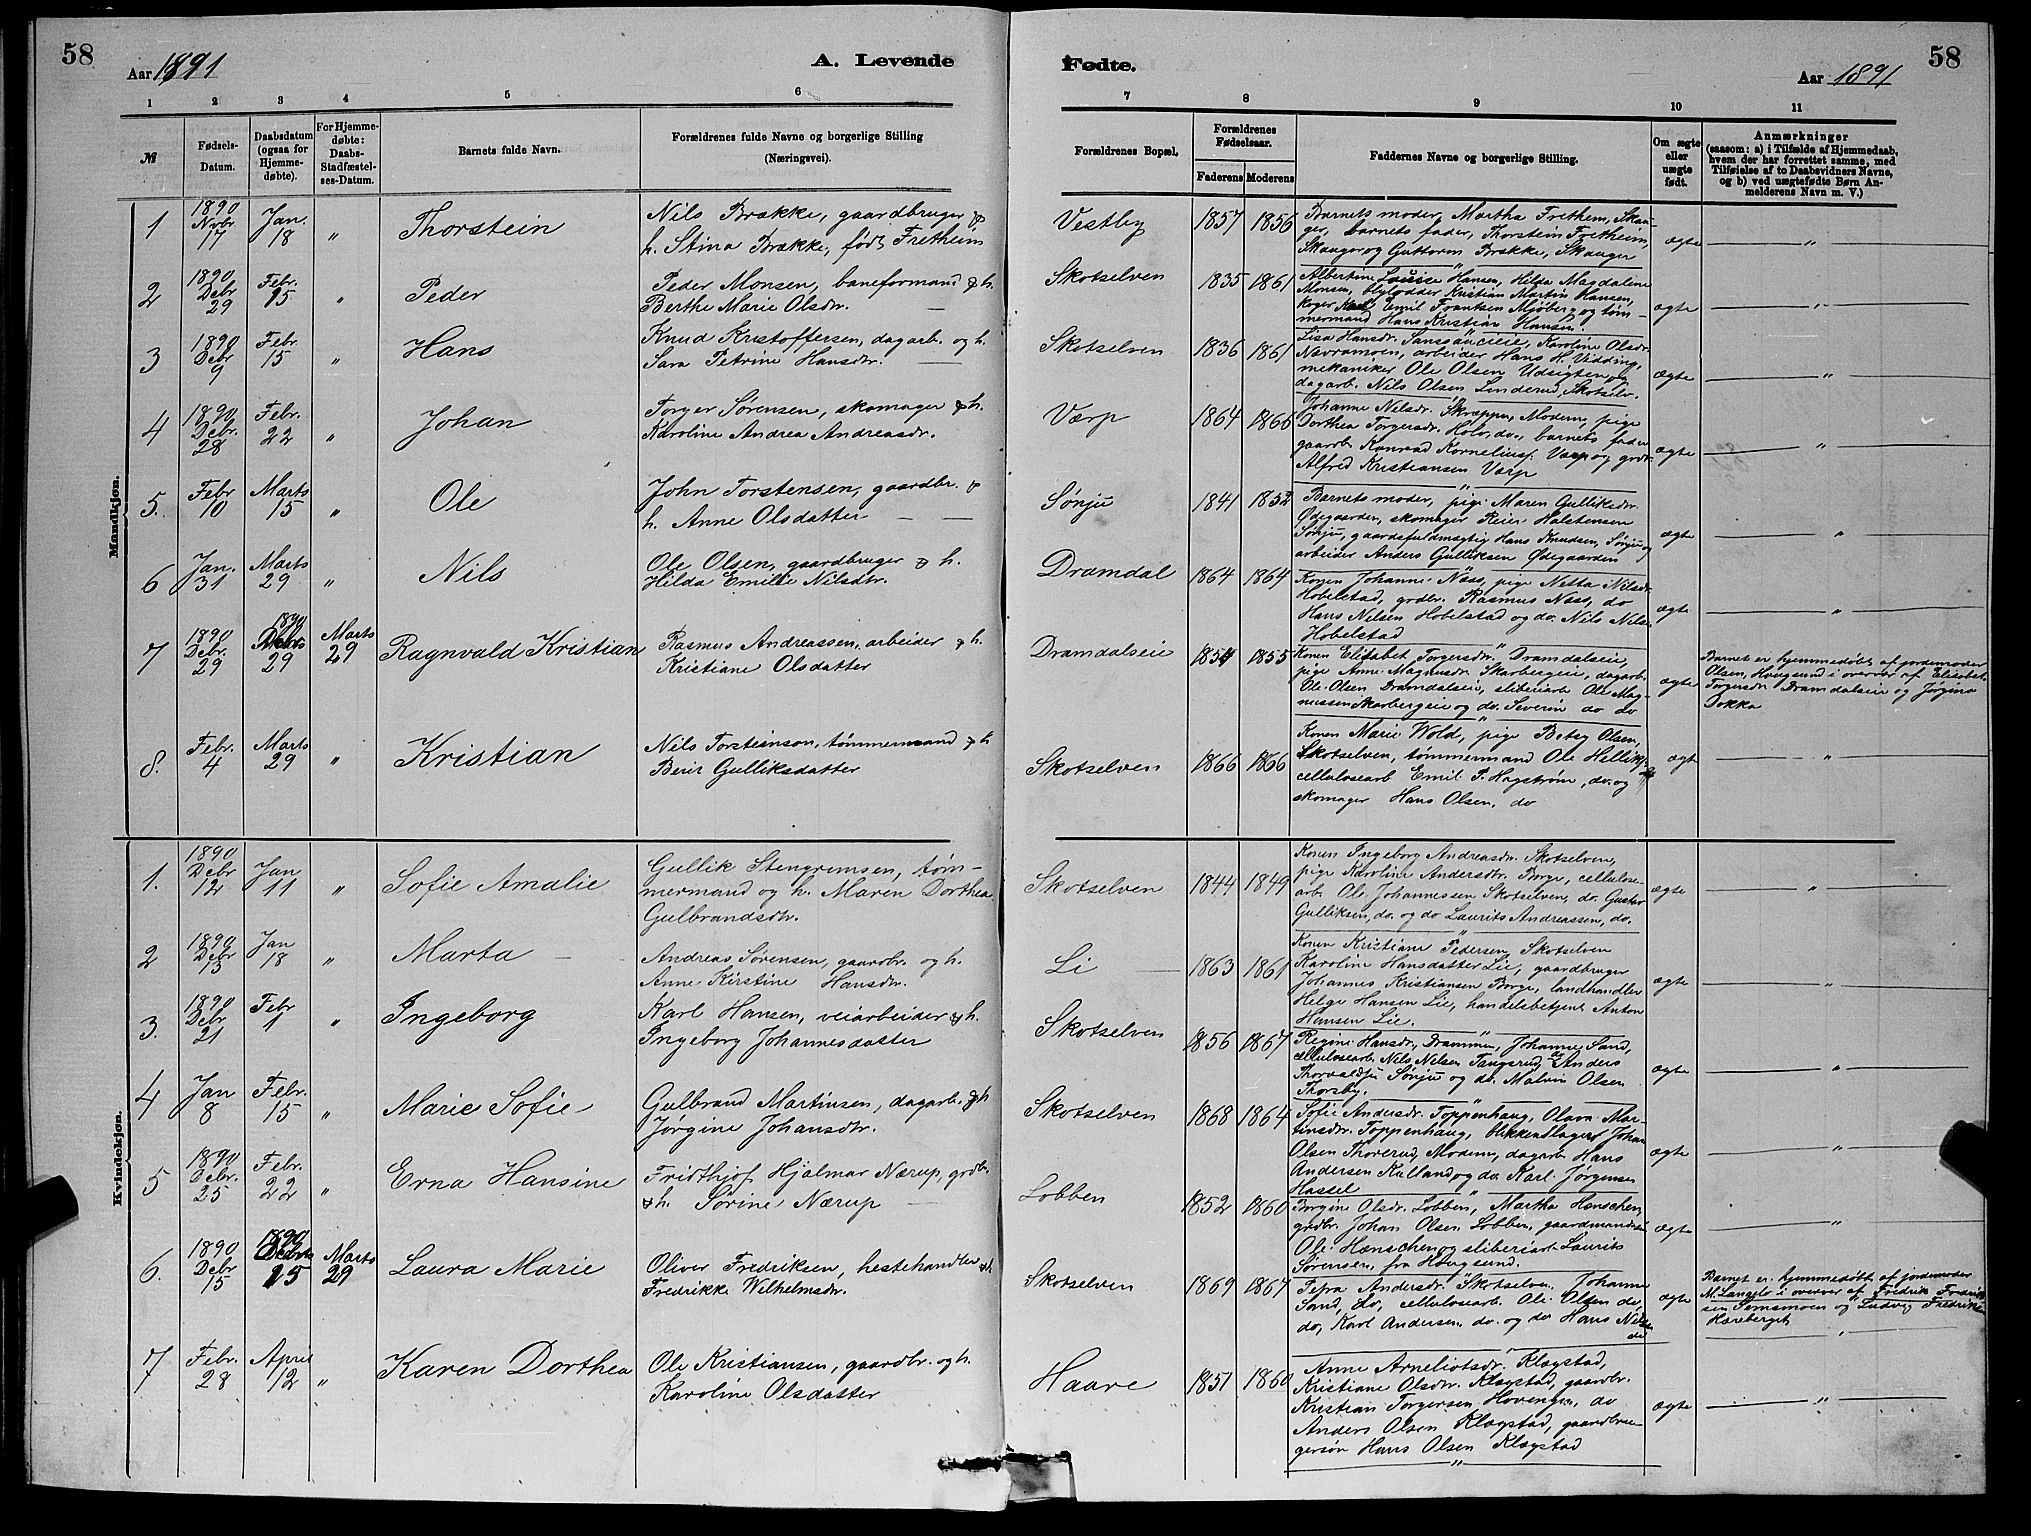 58
Aar 1891
A. Levende
Fødte.
Aar 1891
58
1 2 3 4 5 6 7 8 9 10 11
№
Fødsels-
Datum.
Daabsdatum
(ogsaa for
Hjemme-
døbte).
For Hjemme-
døbte:
Daabs-
Stadfæstel-
ses-Datum.
Barnets fulde Navn.
Forældrenes fulde Navne og borgerlige Stilling
(Næringsvei).
Forældrenes Bopæl.
Forældrenes
Fødselsaar.
Faderens Moderens
Faddernes Navne og borgerlige Stilling.
Om ægte
eller
uægte
født.
Anmærkninger
(saasom: a) i Tilfælde af Hjemmedaab,
hvem der har forrettet samme, med
Tilføielse af to Daabsvidners Navne,
og b) ved uægtefødte Børn An-
melderens Navn m. V.)
Mandkjøn.
1
1890
Nvbr.
17
Jan.
18
"
Thorstein
Nils Brække, gaardbruger &
h. Stina Brække, født Fretheim
Vestby
1857 1856
Barnets moder, Martha Frethem, Skau-
ger, barnets fader, Thorstein Fretheim,
Skauger og Guttorm Brække, Skauger
ægte
"
2
1890
Debr
29
Febr.
15
"
Peder
Peder Monsen, baneformand & h.
Berthe Marie Olsdr.
Skotselven
1835 1861
Albertine Louise Hansen, Hilda Magdalene
Monsen, blylodder Kristian Martin Hansen,
koger Karl Emil Frantsen Mjøberg og tøm-
mermand Hans Kristian Hansen
ægte
"
3
1890
Debr
9
Febr
15
"
Hans
Knud Kristoffersen, dagarb. og h.
Sara Petrine Hansdr.
Skotselven
1836 1861
Lisa Hansdr. Sanssaucieie, Karoline Olsdr.
Navramoen, arbeider Hans H. Vidding,
mekaniker Ole Olsen Udsigten og
dagarb. Nils Olsen Linderud, Skotselv.
ægte
"
4
1890
Debr.
28
Febr.
22
"
Johan
Torger Sørensen, skomager & h.
Karoline Andrea Andreasdr.
Værp
1864 1866
Johanne Nilsdr. Skræppa, Modum, pige
Dorthea Torgersdr. Holo, do., barnets fader
gaarb. Konrad Kornelius. Værp og grdr.
Alfred Kristiansen Værp
ægte
"
5.
Febr
10
Marts
15
"
Ole
John Torstensen, gaardbr. &
h. Anne Olsdatter
Sønju
1841 1852
Barnets moder, pige Maren Gulliksdr.
Ødegaarden, skomager Reier Halstensen
Sønju, gaardsfuldmægtig Hans Knudsen, Sønju og
arbeider Anders Gulliksen Ødegaarden
ægte
"
6
Jan.
31
Marts
29
"
Nils
Ole Olsen, gaardbruger & h.
Hilda Emilie Nilsdtr.
Dramdal
1864 1864
Konen Johanne Næss, pige Netta Nilsdr.
Hobelstad, grdbr. Rasmus Næss, do
Hans Nilsen Hobelstad og do. Nils Nilsen
Hobelstad
ægte
"
7
1890
Debr.
29
1890
Debr
29
Marts
29
Ragnvald Kristian
Rasmus Andreassen, arbeider & h.
Kristiane Olsdatter
Dramdalseie
1854 1855
Konen Elisabet Torgersdr. Dramdalseie,
pige Anne Magnusdr. Skarbergeie, dagarb.
Ole Olsen Dramdalseie, sliberiarb Ole Mag-
nussen Skarbergeie og do. Severin do do
ægte
Barnet er hjemmedøbt af jordemoder
Olsen, Hougsund i overvær af Elisabet
Torgersdr. Dramdalseie og Jørgine
Dokka
8.
Febr.
4
Marts
29
"
Kristian
Nils Torsteinson, tømmermand & h
Berit Gulliksdatter
Skotselven
1866 1866
Konen Marie Wold, pige Betsy Olsen,
Skotselven, tømmermand Ole Helliks.
cellulosearb Emil P. Hagstrøm, do. og
skomager Hans Olsen, do
ægte
"
Kvindekjøn.
1.
1890
Debr
12
Jan
11
"
Sofie Amalie
Gullik Stengrimsen, tøm-
mermand og h. Maren Dorthea
Gulbrandsdtr.
Skotselven
1844 1849
Konen Ingeborg Andreasdr. Skotselven,
pige Karoline Andersdtr. Borge, cellulose-
arb. Ole Johannessen Skotselven, do. Gustav
Gulliksen, do. og do Laurits Andreassen, do.
ægte
"
2
1890
Debr
13
Jan
18
"
Marta
Andreas Sørensen, gaardbr. og h.
Anne Kirstine Hansdr.
Li
1863 1861
Konen Kristiane Pedersen, Skotselven
Karoline Hansdatter Lie, gaardbruger
Johannes Kristiansen Borge, landhandler
Helge Hansen Lie, handelsbetjent Anton
Hansen Lie.
ægte
"
3.
1890
Debr
21
Febr
1
"
Ingeborg
Karl Hansen, veiarbeider & h.
Ingeborg Johannesdatter
Skotselven
1856 1867
Regine Hansdr. Drammen, Johanne Sand,
cellulosearb. Nils Nilsen Tangerud, Anders
Thorvaldsen Sønju og do. Malvin Olsen
Thorsby.
ægte
"
4
Jan
8
Febr.
15
"
Marie Sofie
Gulbrand Martinsen, dagarb. & h
Jørgine Johansdtr.
Skotselven
1868 1864
Sofie Andersdr. Toppenhaug, Olava Mar-
tinsdr. Toppenhaug, blikkenslager Johan
Olsen Thorerud, Modum, dagarb. Hans
Andersen Kulland og do. Karl Jørgensen
Hassel
ægte
"
5
1890
Debr.
25
Febr.
22
"
Erna Hansine
Fridthjof Hjalmar Nærup, grdbr.
& h. Sørine Nærup
Lobben
1852 1860
Borgine Olsdr. Lobben, Martha Hænschen,
grdbr. Johan Olsen Lobben, gaardmandssøn
Ole Hænschen og sliberiarb. Laurits
Sørensen, fra Hougsund.
ægte
"
6.
1890
Debr
15
1890
Debr
15
Marts
29
Laura Marie
Oliver Fredriksen, hestehandler & h.
Fredrikke Wilhelmsdr.
Skotselven
1869 1867
Petra Andersdr. Skotselven, Johanne
Sand, do, cellulosearb. Ole Olsen do,
do, Karl Andersen, do. og do Hans Nilsen
do
ægte
Barnet er hjemmedøbt af jordemoder
M. Langelo i overvær af Fredrik Fredrik-
sen Semsmoen og Ludvig Fredriksen
Hareberget
"
7
Febr.
28
April
12
"
Karen Dorthea
Ole Kristiansen, gaardbr. og h.
Karoline Olsdatter
Haare
1851 1860
Anne Arneliotsdr. Klægstad,
Kristiane Olsdtr. Klægstad, gaardbr.
Kristian Torgersen Hovenga, do
Anders Olsen Klægstad, gaardbru-
gersøn Hans Olsen Klægstad
ægte
"
"